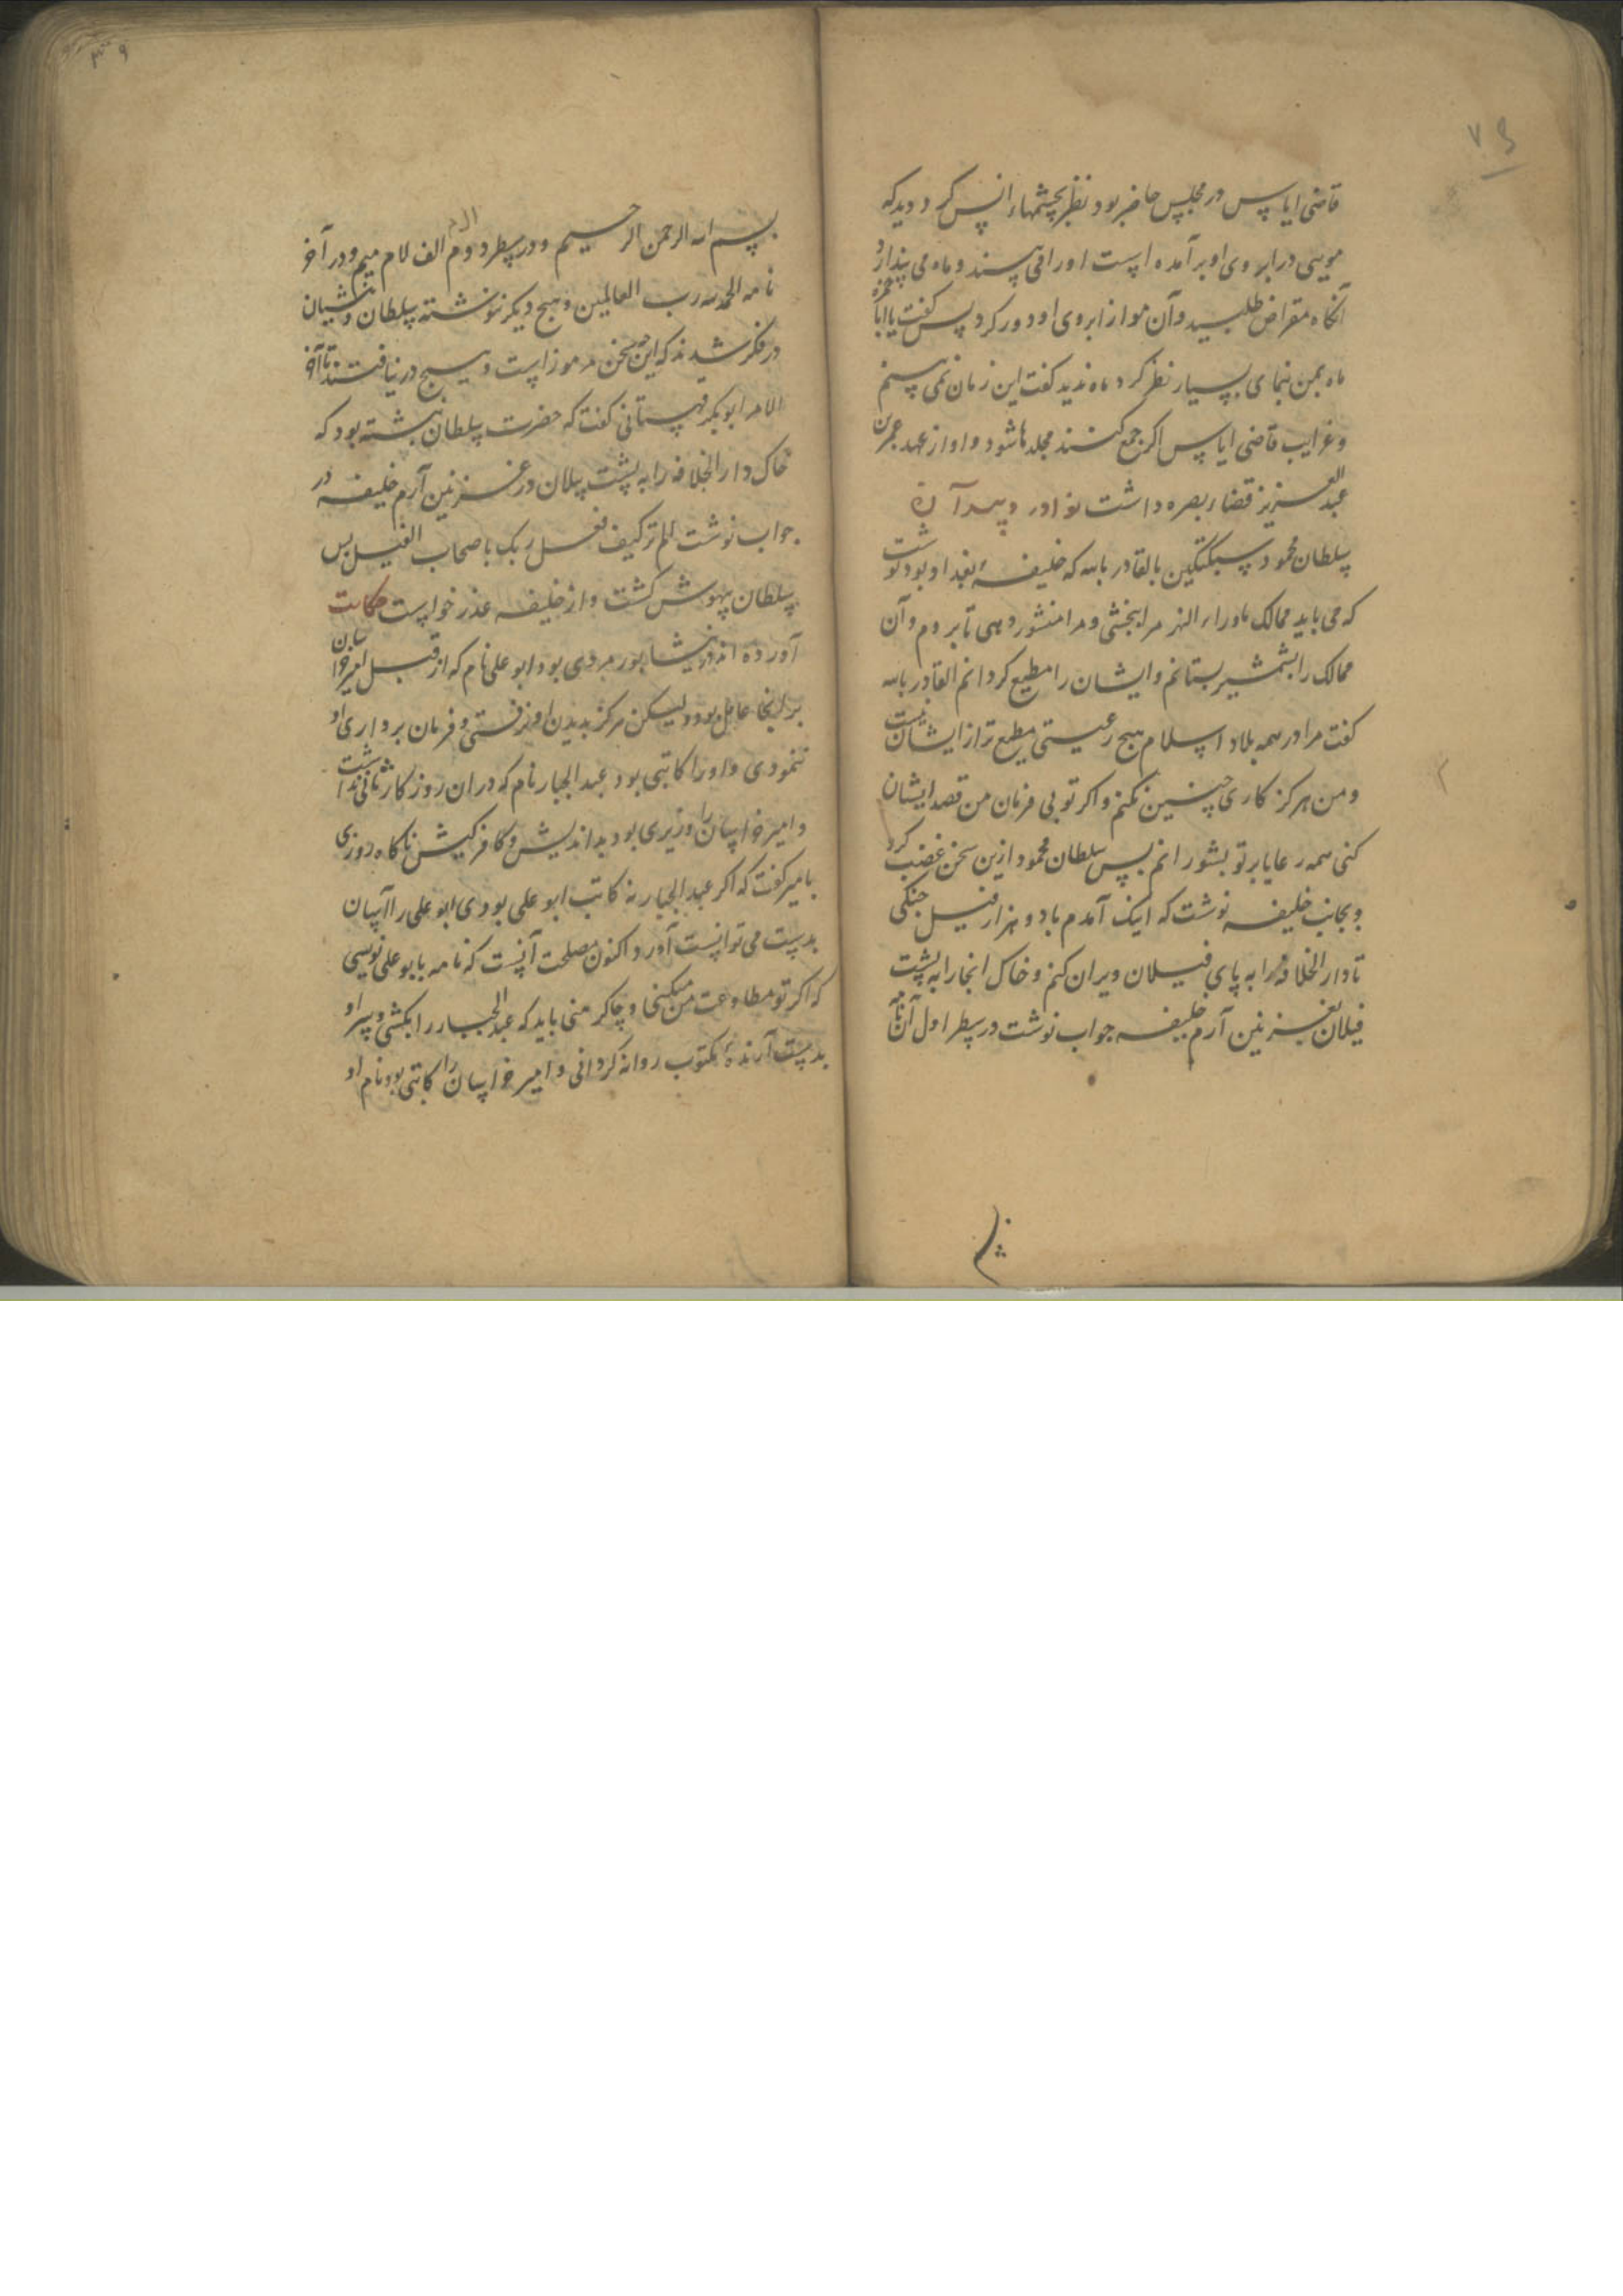 قاضی ایاس در مجلس حاضر بود نظر بچشمهاء انس کرد دید که
مویی در ابروی او بر آمده است او را می بیند و ماه می پندارد
آنگاه مقراض طلبید و آن مو از ابروی او دور کرد پس گفت یا ابا حمزه
ماه بمن نمای بسیار نظر کرد ماه ندید گفت این زمان نمی بینم
و غرایب قاضی ایاس اگر جمع کنند مجلدها شود و او از عهد عمر بن
عبد العزیز قضاء بصره داشت نوادر
سلطان محمود سبکتکین بالقادر بالله که خلیفهٔ بغداد بود نوشت
که می باید ممالک ماوراء النهر مرا بخشی و مرا منشور دهی تا بروم و آن
ممالک را بشمشیر بستانم و ایشان را مطیع گردانم القادر بالله
گفت مرا در همه بلاد اسلام هیچ رعیتی مطیع تر از ایشان نیست
و من هرگز کاری چنین نکنم و اگر تو بی فرمان من قصد ایشان
کنی همه رعایا بر تو بشورانم پس سلطان محمود ازین سخن غضب کرد
و بجانب خلیفه نوشت که اینک آمدم با دو هزار فیل جنگی
تا دار الخلافه را به پای فیلان ویران کنم و خاک انجا را به پشت
فیلان بغزنین آرم خلیفه جواب نوشت در سطر اول آن نامه
بسم الله الرحمن الرحیم و در سطر دوم الف لام میم الم و در آخر
نامه الحمد لله رب العالمین و هیچ دیگر ننوشته سلطان و منشیان
در فکر شدند که این چه سخن مرموز است و هیچ در نیافتند تا آخر
الامر ابوبکر قهستانی گفت که حضرت سلطان نبشته بود که
خاک دار الخلافه را به پشت پیلان در غزنین آرم خلیفه در
جواب نوشت الم تر کیف فعل ربک باصحاب الفیل پس
سلطان بیهوش گشت و از خلیفه عذر خواست حکایت
آورده اند در نیشابور مردی بود ابو علی نام که از قبل امیر خراسان
بر انجا عامل بود و لیکن هرگز بدیدن او نرفتی و فرمان برداری او
ننمودی و او را کاتبی بود عبد الجبار نام که در ان روزگار ثانی نداشت
و امیر خراسان را وزیری بود بد اندیش و کافر کیش ناگاه روزی
با امیر گفت که اگر عبد الجبار نه کاتب ابو علی بودی ابو علی را آسان
بدست می توانست آورد اکنون مصلحت آنست که نامه بابو علی نویسی
که اگر تو مطاوعت من میکنی و چاکر منی باید که عبد الجبار را بکشی و سر او
بدست آرندهٔ مکتوب روانه گردانی و امیر خراسان را کاتبی بود نام او